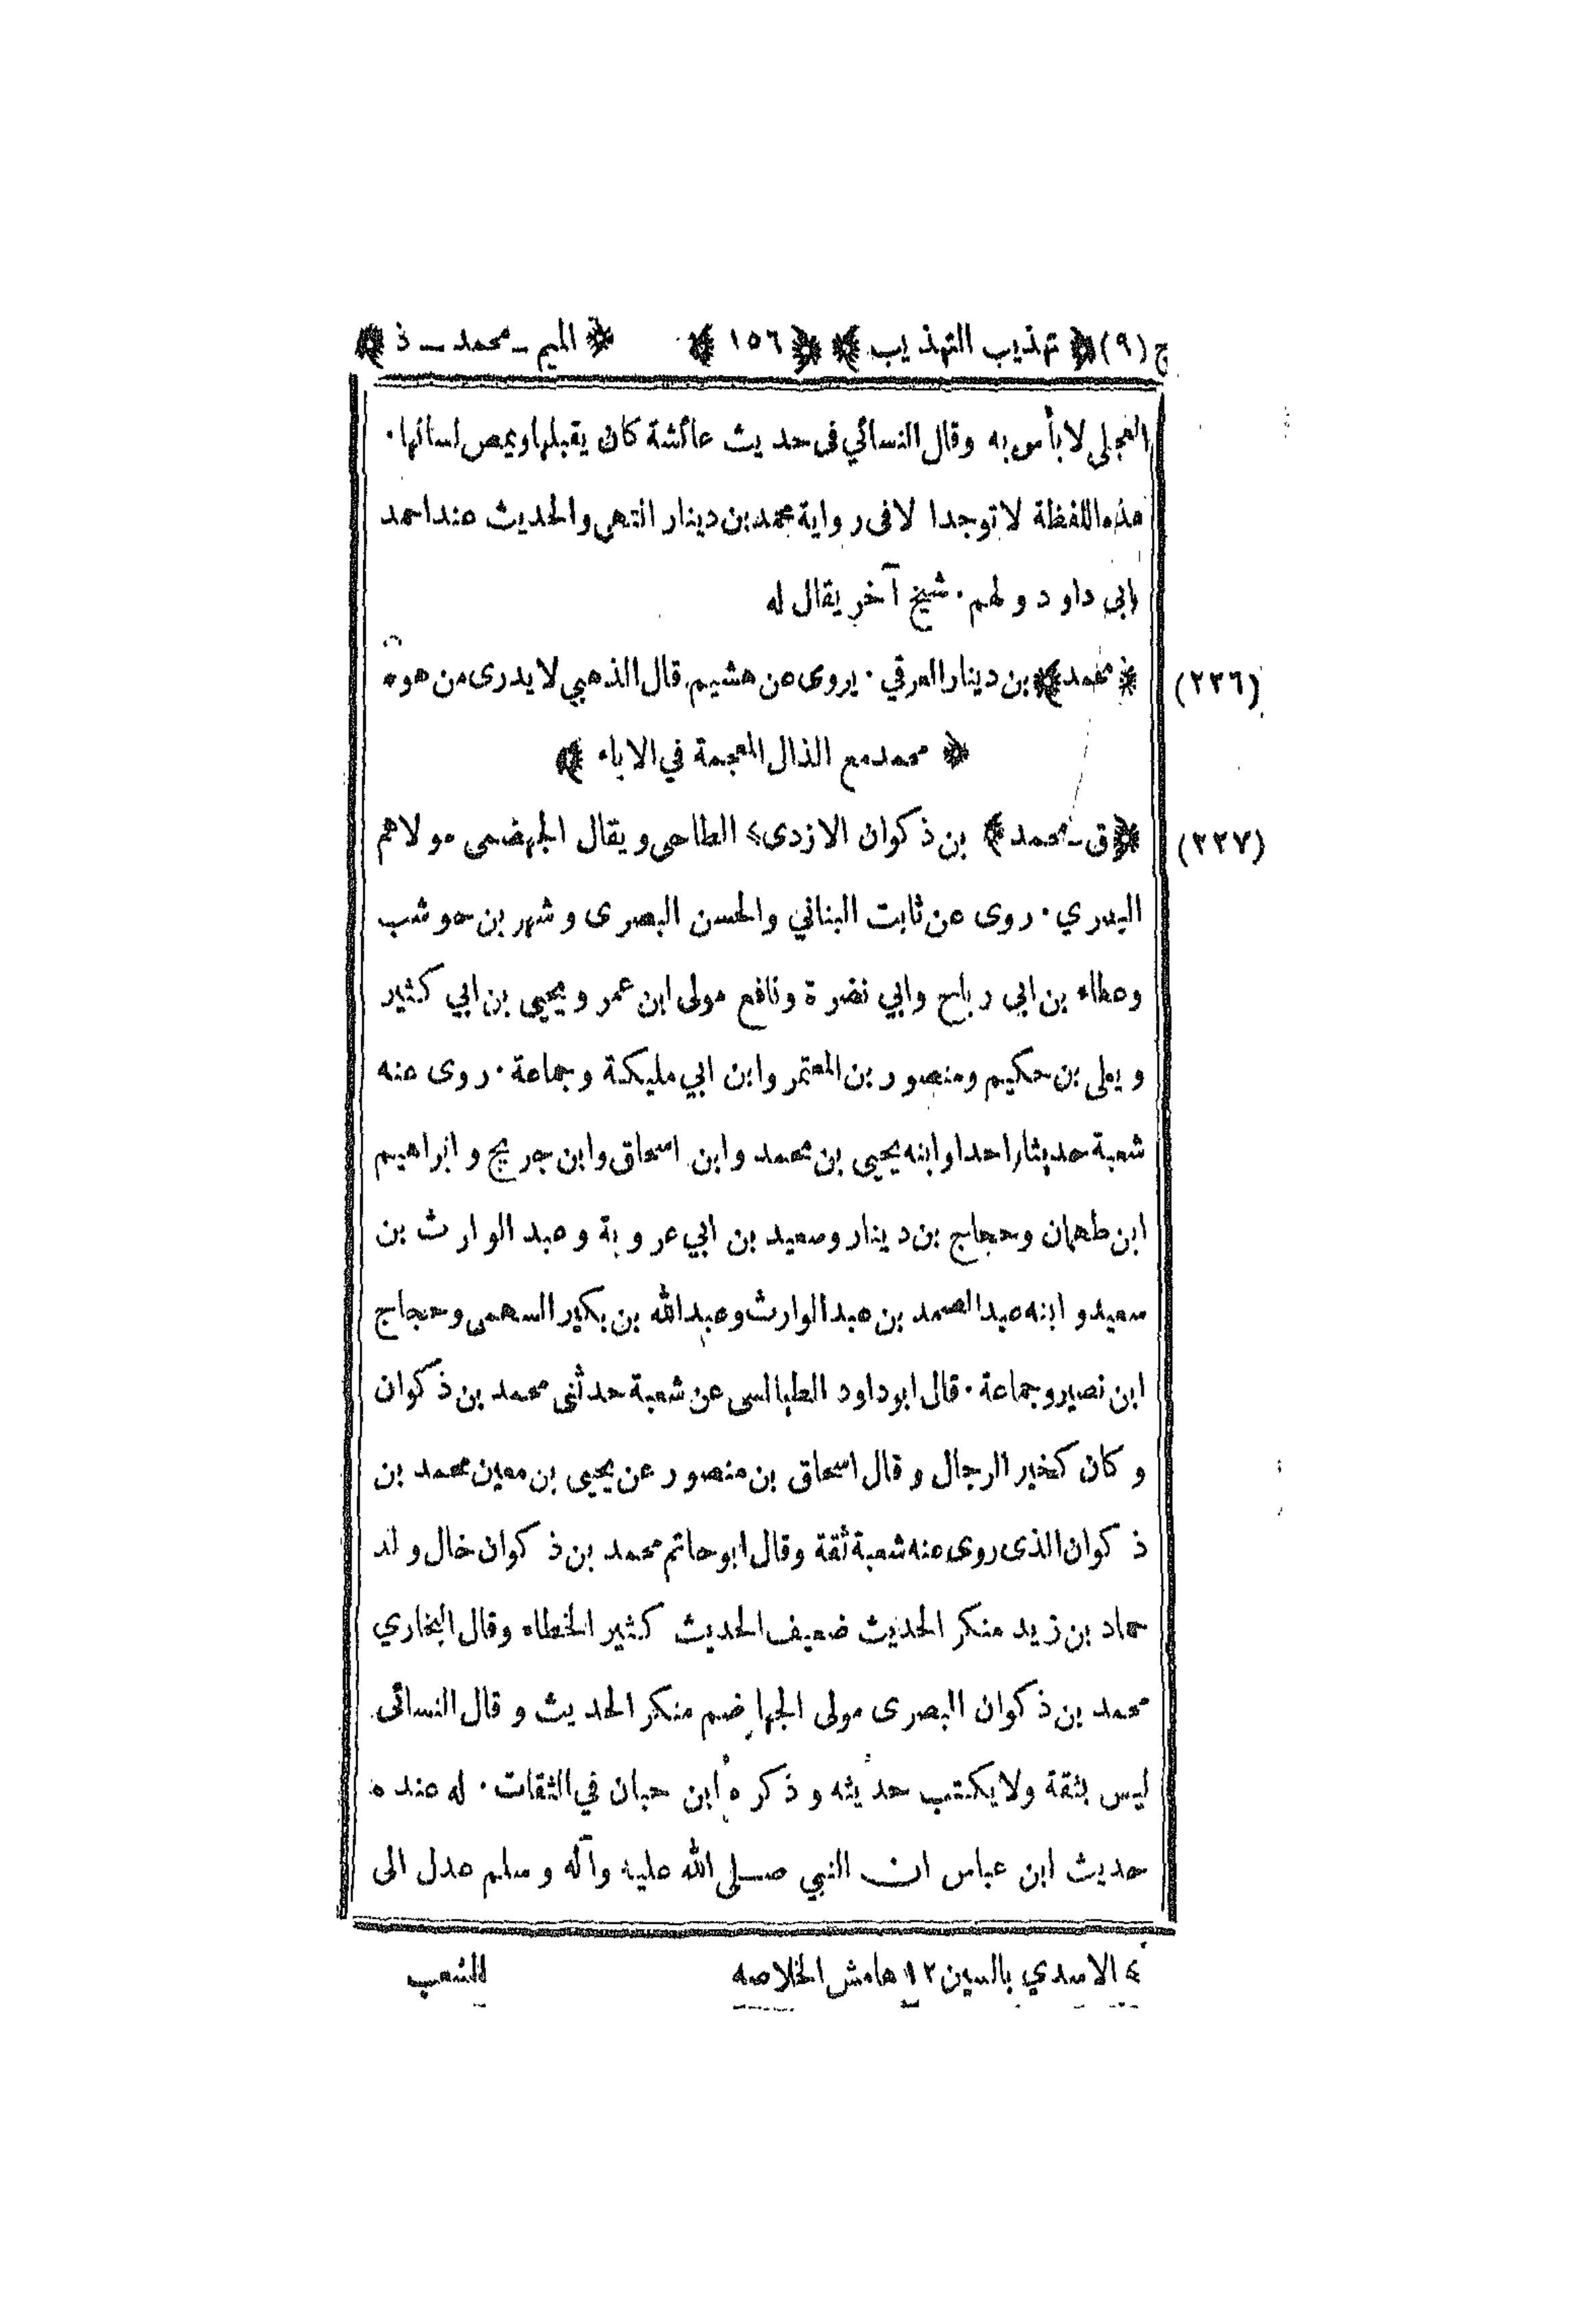 ج (٩) ﴿ تهذيب التهذيب ﴾ ﴿ ١٥٦ ﴾ ﴿ الميم - محمد - ذ ﴾
العجلى لا بأس به وقال النسائي فى حديث عائشة كان يقبلها ويمص لسانها.
هذه اللفظة لا توجد الا فى رواية محمد بن دينار انتهى والحديث عند احمد
وابى داود ولهم. شيخ آخر يقال له
(٢٣٦) ﴿ محمد ﴾ بن دينار العرقي. يروى عن هشيم قال الذهبي لا يدرى من هو ه
﴿ محمد مع الذال المعجمة في الاباء ﴾
(٢٣٧) ﴿ ق - محمد ﴾ بن ذكوان الازدى ٤ الطاحى ويقال الجهضمى مولاهم
البصري. روى عن ثابت البناني والحسن البصرى وشهر بن حوشب
وعطاء بن ابى رباح وابي نضرة ونافع مولى ابن عمر ويحيى بن ابي كثير
ويعلى بن حكيم ومنصور بن المعتمر وابن ابي مليكة وجماعة. روى عنه
شعبة حديثا واحدا وابنه يحيى بن محمد وابن اسحاق وابن جريج وابراهيم
ابن طهمان وحجاج بن دينار وسعيد بن ابي عروبة وعبد الوارث بن
سعيد وابنه عبد الصمد بن عبد الوارث وعبد الله بن بكير السهمى وحجاج
ابن نصير وجماعة. قال ابو داود الطيالسى عن شعبة حدثنى محمد بن ذكوان
وكان كخير الرجال وقال اسحاق بن منصور عن يحيى بن معين محمد بن
ذكوان الذى روى عنه شعبة ثقة وقال ابو حاتم محمد بن ذكوان خال ولد
حماد بن زيد منكر الحديث ضعيف الحديث كثير الخطاء وقال البخاري
محمد بن ذكوان البصرى مولى الجهاضم منكر الحديث وقال النسائى
ليس بثقة ولا يكتب حديثه وذكره ابن حبان في الثقات. له عنده
حديث ابن عباس ان النبي صلى الله عليه وآله وسلم عدل الى
٤ الاسدي بالسين ١٢ هامش الخلاصه
للشعب